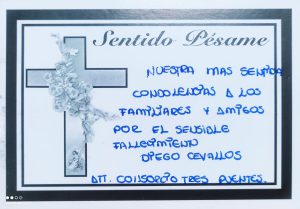 Sentido Pésame
NUESTRA MAS SENTIDA
CONDOLENCIAS A LOS
FAMILIARES Y AMIGOS
POR EL SENSIBLE
FALLECIMIENTO
DIEGO CEVALLOS
ATT. CONSORCIO TRES PUENTES.